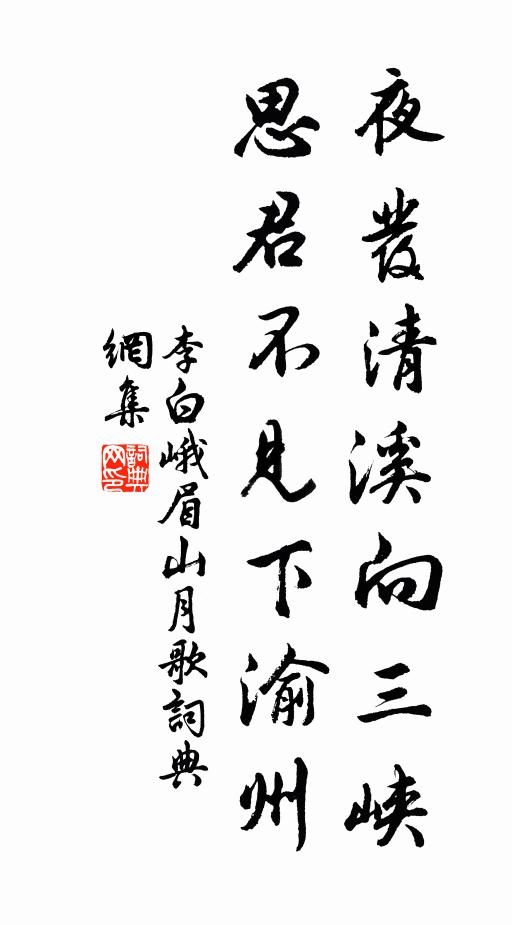 夜發清溪向三峽
思君不見下渝州
李白峨眉山月歌詞典
網集
詞典
网印